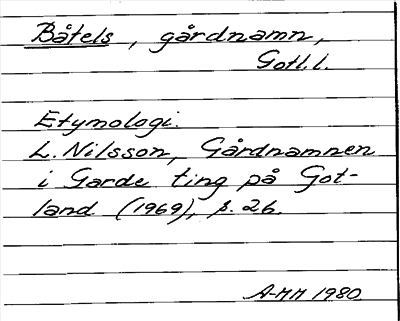 Båtels, gårdnamn,
Gotl.l.
Etymologi.
L. Nilsson, Gårdnamnen
i Garde ting på Got-
land (1969), s. 26.
A-MM 1980